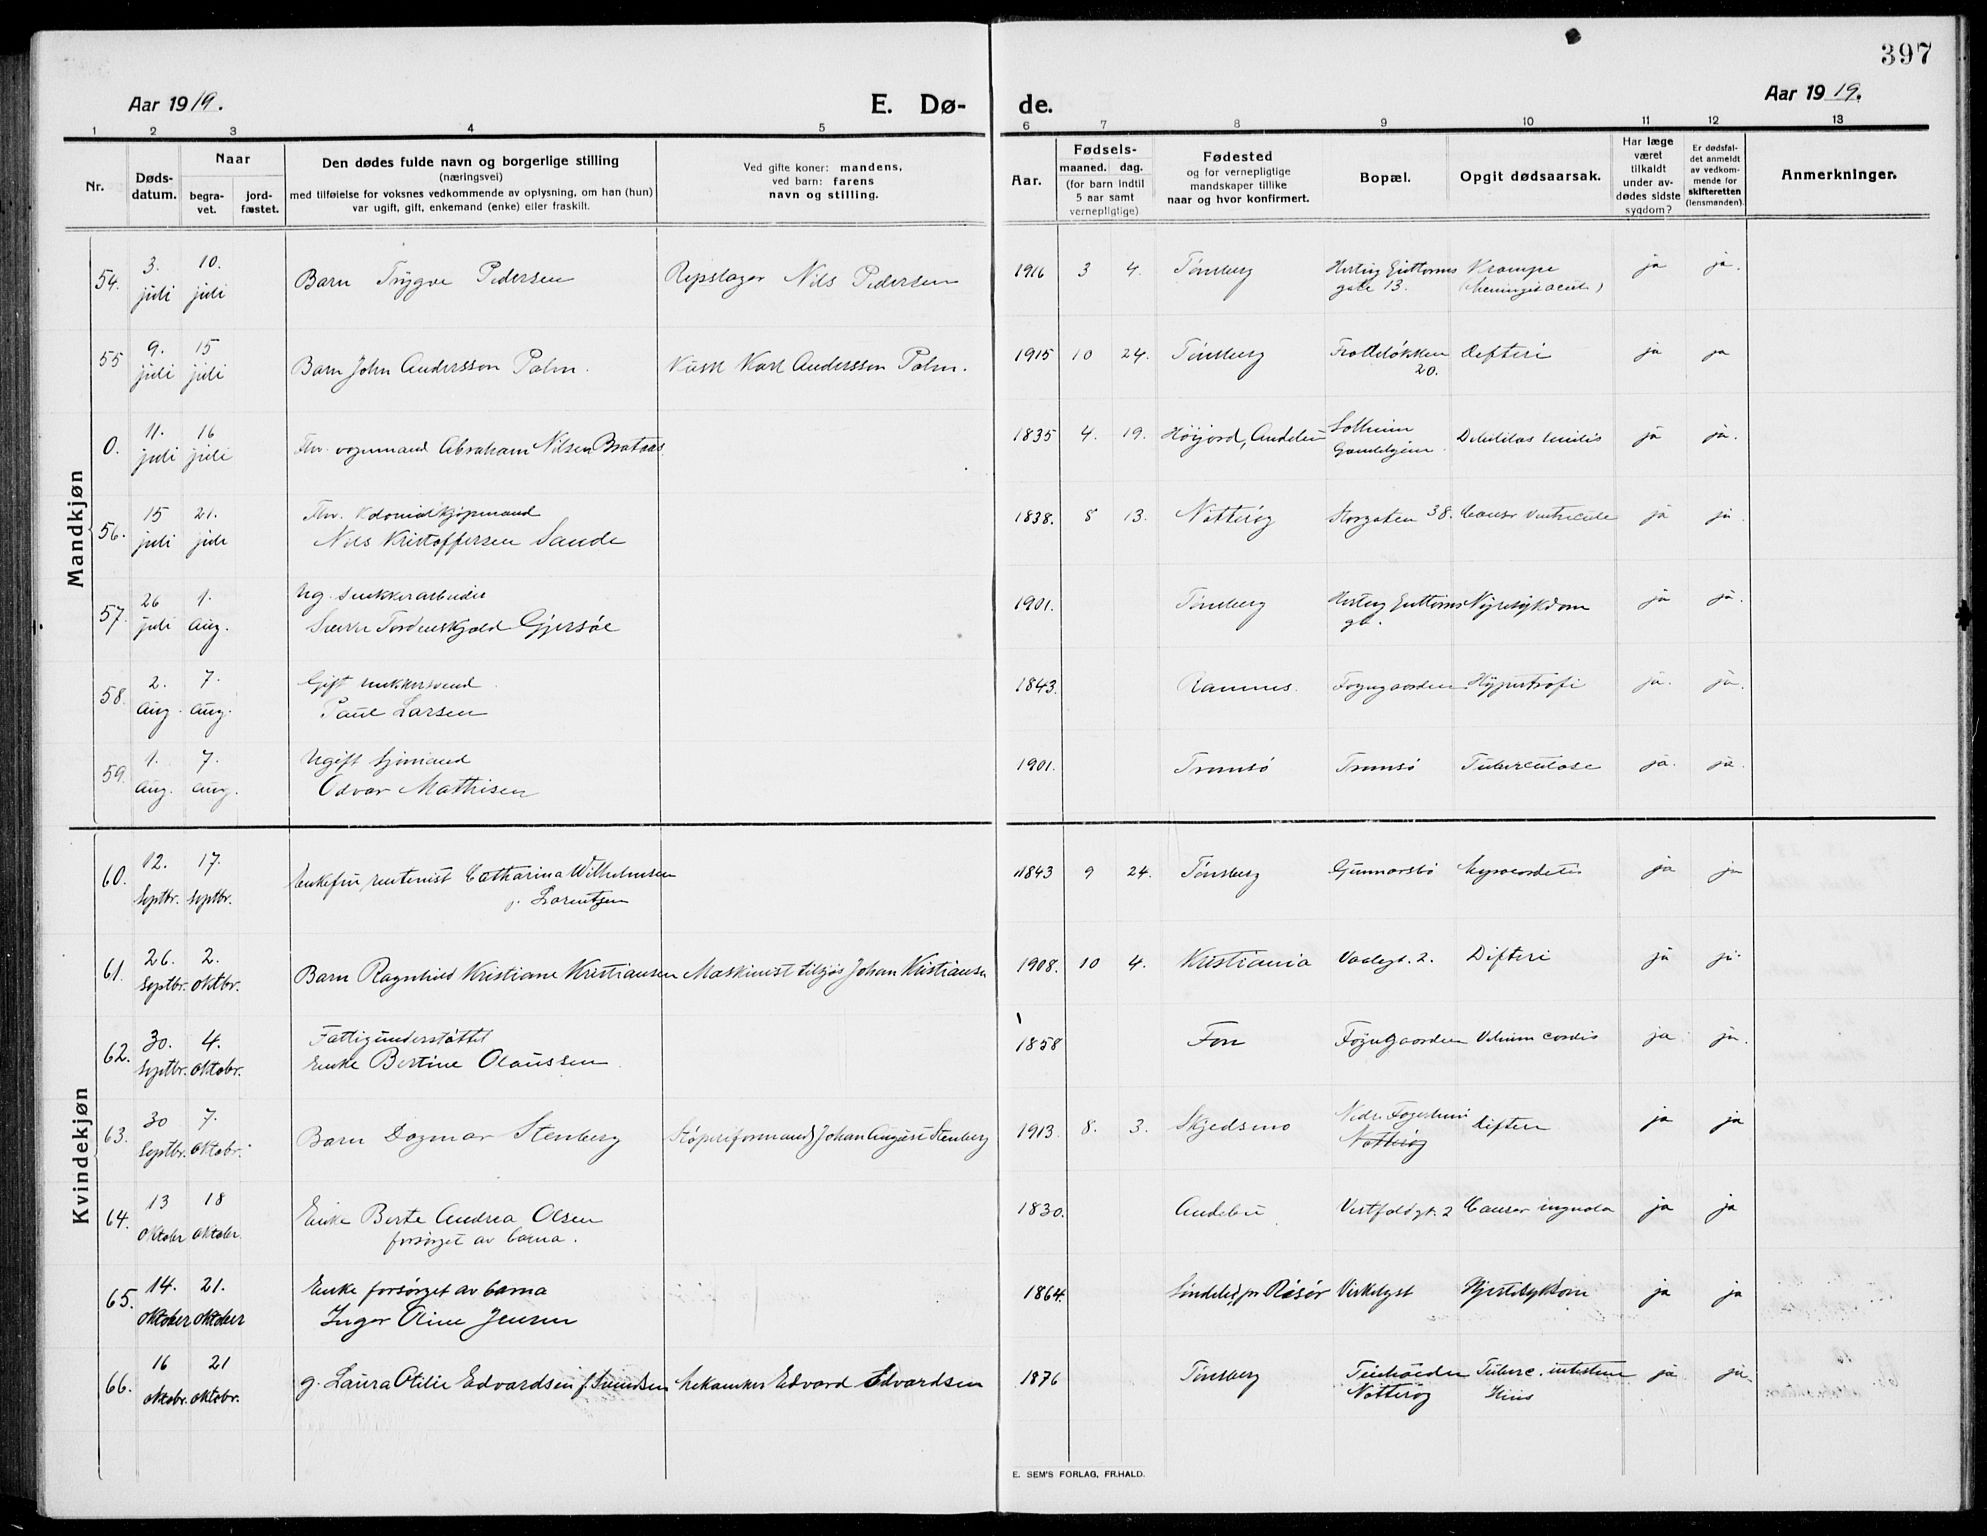 397
Aar 1919.
E. Dø-
de.
Aar 1919.
1 2 3 4 5 6 7 8 9 10 11 12 13
Nr.
Døds-
datum.
Naar
begra-
vet.
jord-
fæstet.
Den dødes fulde navn og borgerlige stilling
(næringsvei)
med tilføielse for voksnes vedkommende av oplysning, om han (hun)
var ugift, gift, enkemand (enke) eller fraskilt.
Ved gifte koner: mandens,
ved barn: farens
navn og stilling.
Aar.
Fødsels-
maaned. dag.
(for barn indtil
5 aar samt
vernepligtige)
Fødested
og for vernepligtige
mandskaper tillike
naar og hvor konfirmert.
Bopæl.
Opgit dødsaarsak.
Har læge
været
tilkaldt
under av-
dødes sidste
sygdom?
Er dødsfal-
det anmeldt
av vedkom-
mende for
skifteretten
(lensmanden).
Anmerkninger.
Mandkjøn
54. 3. juli 10. juli Barn Trygve Pedersen Repslager Nils Pedersen 1916 3 4. Tønsberg Hertug Guttorms gate 13. Krampe ja ja.
55 9. juli 15 juli Barn John Andersson Palm. Karl Andersson Palm. 1915 10 24. Tønsberg 20. Difteri ja ja
0. 11. juli 16 juli Fhv. vognmand Abraham Nilsen Brataas 1835 4. 19. Høijord, Andebu Solheim Debilitas senilis ja ja.
56. 15 juli 21. juli Fhv. Kolonialkjøpmand
Nils Kristoffersen Sande 1838. 8 13. Nøtterøy Storgaten 38. Cancer ventriculi ja ja
57. 26 juli 1. aug. Ug. Tordenskjold Gjersøe 1901. Tønsberg Hertug Guttorms gt. Nyresykdom ja ja.
58. 2. aug. 7. aug. Gift
Paul Larsen 1843. Ramnes. Føyngaarden Hypertrofi ja. ja.
59. 1. aug. 7. aug. Ugift sjømand
Odvar Mathisen 1901. Tromsø Tromsø Tuberculose ja. ja.
Kvindekjøn
60. 12. Septbr. 17. Septbr. Enkefru, rentenist Catharina Wilhelmsen
f. Lorentzen 1843 9 24. Tønsberg Gunnarsbø ja ja
61. 26. Septbr. 2. oktbr. Barn Ragnhild Kristiane Kristiansen Maskinist tilsjøs Johan Kristiansen 1908. 10 4. Kristiania 2. Difteri ja ja.
62. 30. Septbr. 4. oktobr. Fattigunderstøttet
Enke Bertine Olaussen. 1858 Fon Føyngaarden Vitium cordis ja ja.
63. 30 Septbr. 7. oktobr. Barn Dagmar Stenberg Støperiformand Johan August Stenberg 1913. 8. 3. Skjedsmo Nøtterøy Difteri ja ja
64. 13 oktober 18 oktober. Enke Berte Andrea Olsen
forsørget av barna. 1830. Andebu Vestfoldgt. 2 Cancer ja ja
65. 14. oktober 21. oktober Enke forsørget av barna
Inger Oline Jensen 1864. Søndeled pr Risør Virkelyst Hjertesykdom ja ja
66. 16 oktobr. 21 oktobr. g. Laura Otilie Edvardsen f. Svendsen Mekaniker Edvard Edvardsen 1876 Tønsberg Teiehøiden
Nøtterøy Tuberc. ja ja
E. SEM'S FORLAG, FR.HALD.